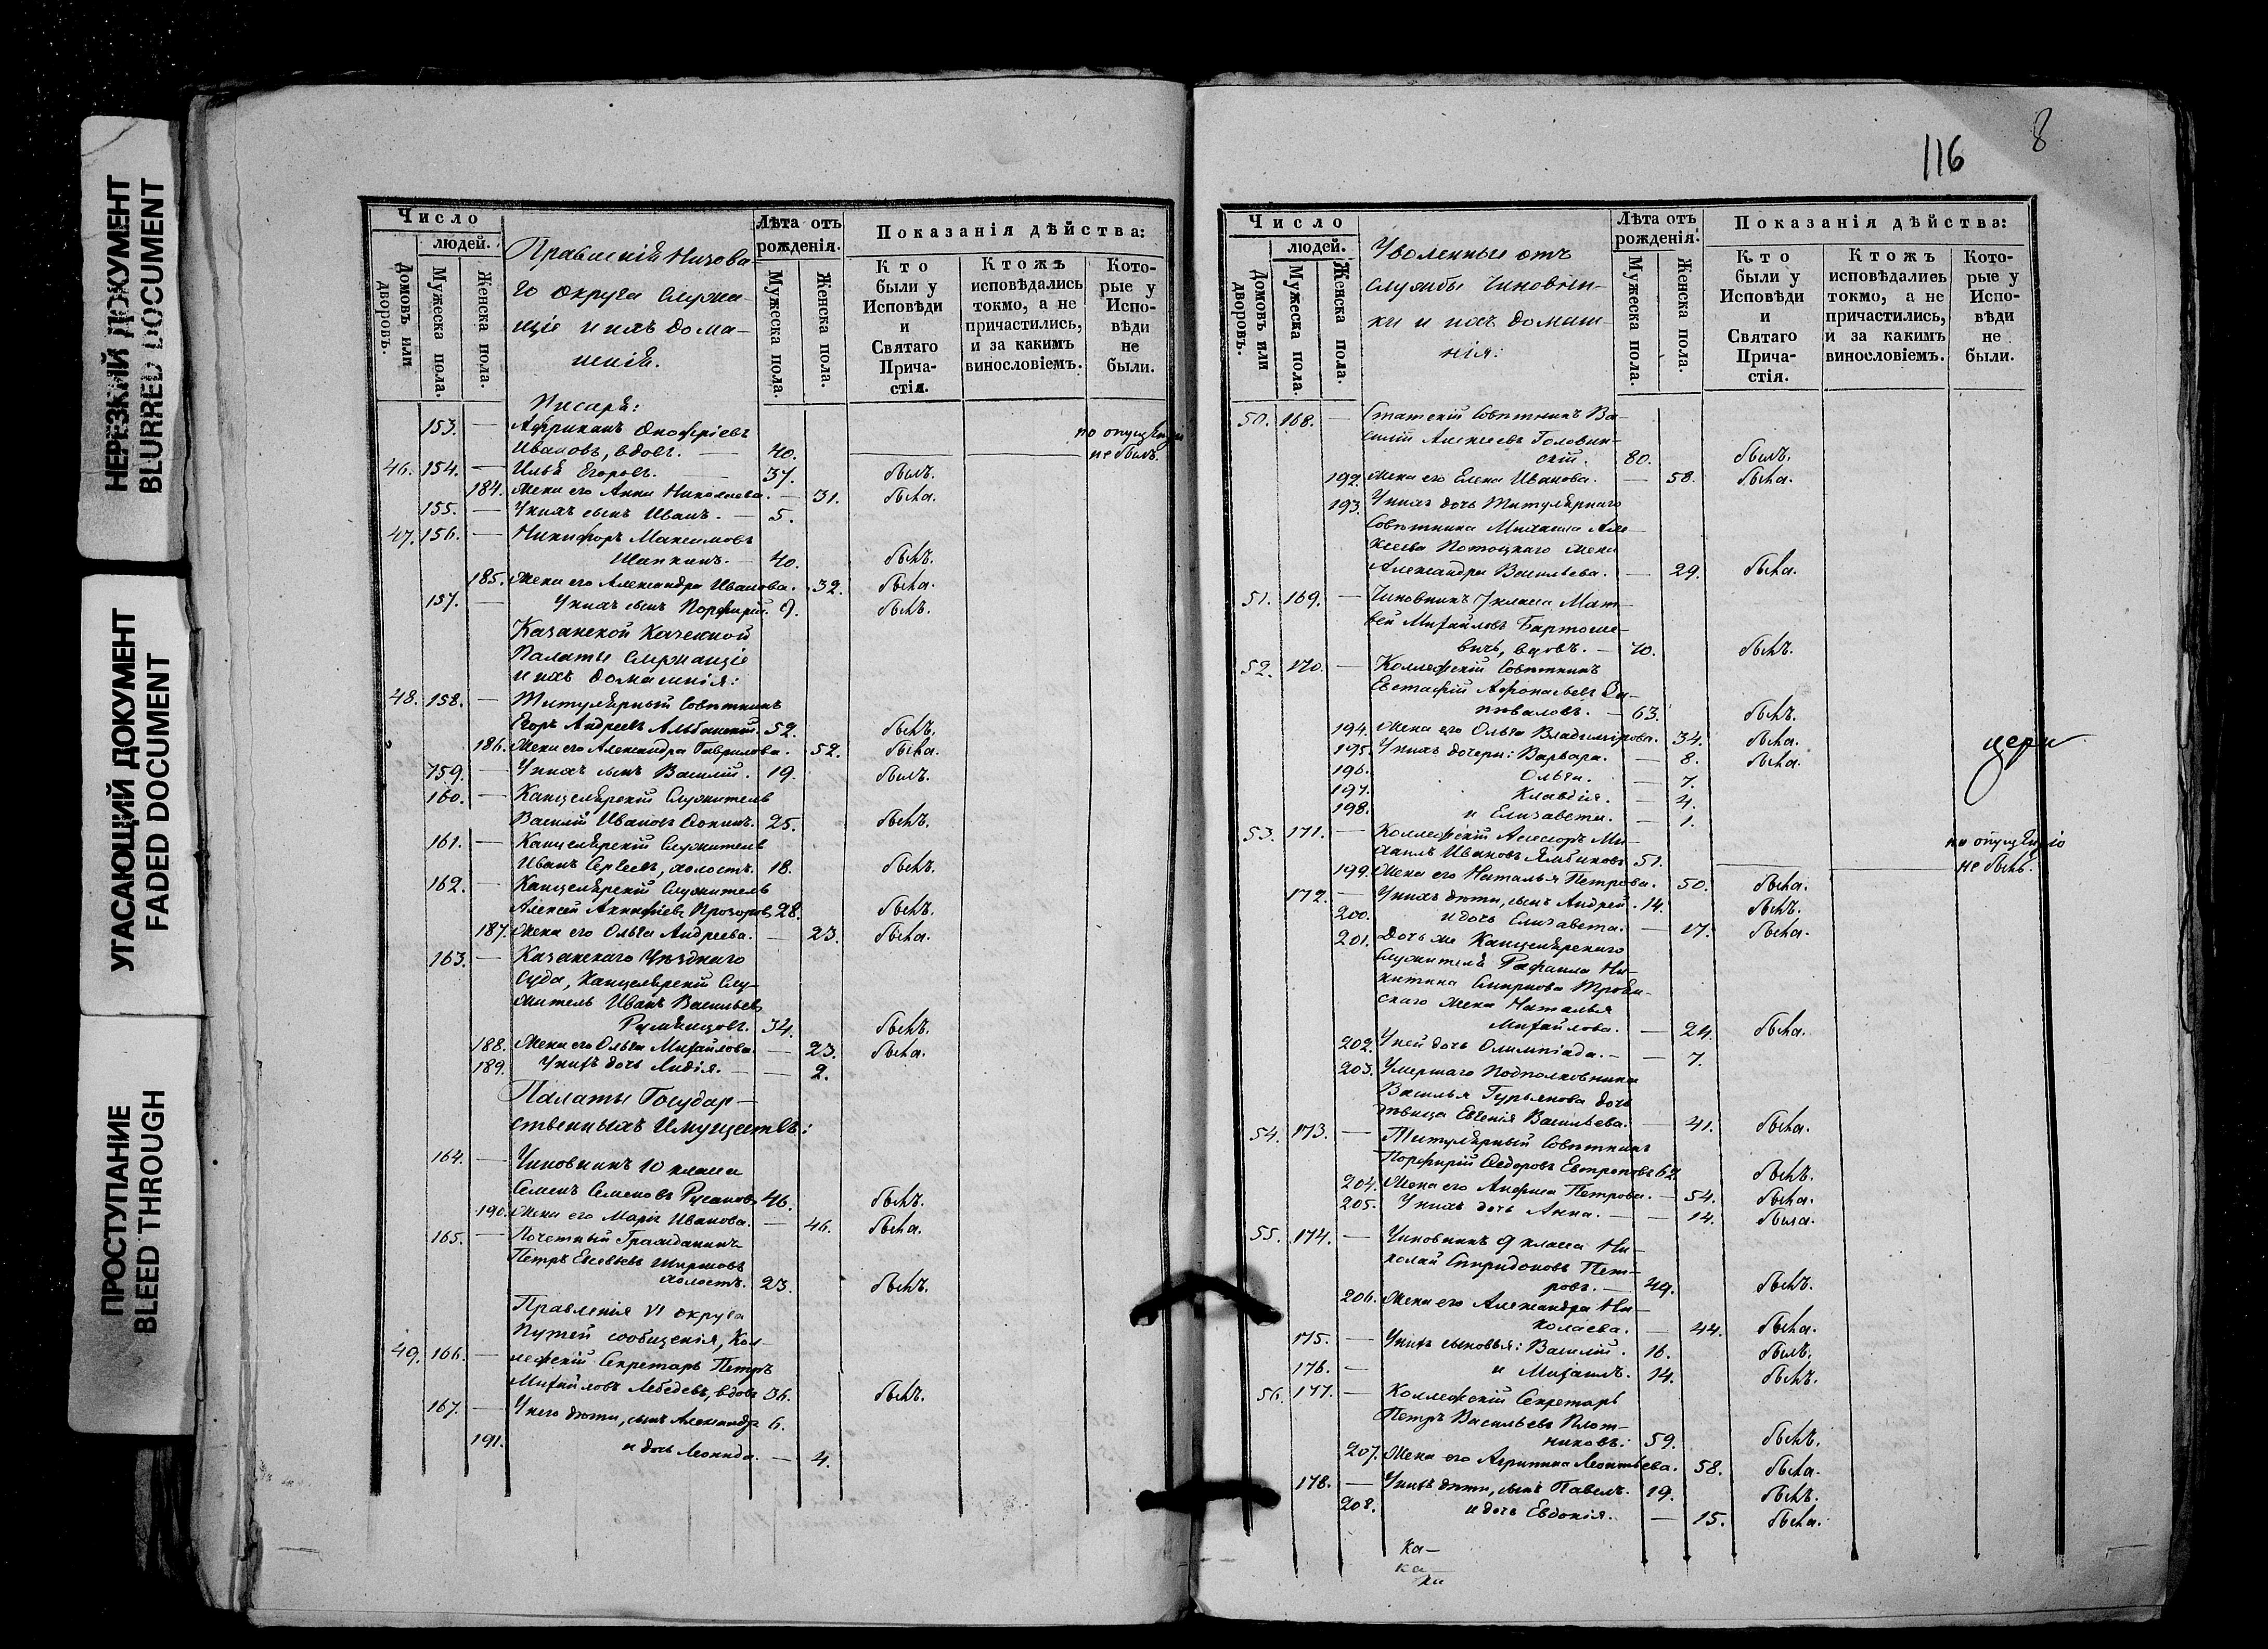 НЕРЕЗКИЙ ДОКУМЕНТ
BLURRED DOCUMENT
УГАСАЮЩИЙ ДОКУМЕНТ
FADED DOCUMENT
ПРОСТУПАНИЕ
BLEED THROUGH
Число
людей.
Домовъ или дворовъ.
Мужеска пола.
Женска пола.
Правленія Низова-
го округа Служа-
щіе и ихъ дома-
шнія.
Лѣта отъ рожденія.
Мужеска пола.
Женска пола.
Показанія дѣйства:
Кто были у Исповѣди и Святаго Прича-стія.
Ктожъ исповѣдались токмо, а не причастились, и за какимъ винословіемъ.
Кото-рые у Испо-вѣди не были.
Писаря:
153. — Африканъ Онофріевъ
Ивановъ, вдовъ. — 40. не былъ.
46. 154. — Илья Егоровъ. 37. былъ.
184. Жена его Анна Николаева. — 31. была.
155. — У нихъ сынъ Иванъ. — 5.
47. 156. — Никифоръ Максимовъ
Шапкинъ. — 40. былъ.
185. Жена его Александра Иванова. 32. была.
157. — У нихъ сынъ Порфирій. 9. былъ.
Казанской Казенной
Палаты Служащіе
и ихъ домашнія:
48. 158. — Титулярный Совѣтникъ
Егоръ Андреевъ Альбинскій. 52. былъ.
186. Жена его Александра Гаврилова. 52. была.
159. — У нихъ сынъ Василій. 19. былъ.
160. — Канцелярскій Служитель
Василій Ивановъ 25. былъ.
161. — Канцелярскій Служитель
Иванъ Сергеевъ, холостъ. 18. былъ.
162. — Канцелярскій Служитель
Алексей Прозоровъ 28. былъ.
187. Жена его Ольга Андреева. — 23. была.
163. — Казанскаго Уѣзднаго
Суда, Канцелярскій Слу-
житель Иванъ Васильевъ
Румянцовъ. 34. былъ.
188. Жена его Ольга Михайлова. — 23. была.
189. У нихъ дочь Лидія. — — 2.
Палаты Государ-
ственныхъ Имуществъ:
164. — Чиновникъ 10 класса
Семенъ Семеновъ Русановъ 46. былъ.
190. Жена его Марія Иванова. — 46. была.
165. — Почетный Гражданинъ
Петръ Евсевьевъ
холостъ. 23. былъ.
Правленія VI округа
Путей сообщенія, Кол-
49. 166. — лежскій Секретарь Петръ
Михайловъ Лебедевъ, вдовъ 36. былъ.
167. — У него дѣти, сынъ Александръ 6.
191. и дочь Леонида. — 4.
116
8
Число
людей.
Домовъ или дворовъ.
Мужеска пола.
Женска пола.
Уволенные отъ
службы Чиновни-
ки и ихъ домаш-
нія:
Лѣта отъ рожденія.
Мужеска пола.
Женска пола.
Показанія дѣйства:
Кто были у Исповѣди и Святаго Прича-стія.
Ктожъ исповѣдались токмо, а не причастились, и за какимъ винословіемъ.
Кото-рые у Испо-вѣди не были.
50. 168. — Статскій Совѣтникъ Ва-
силій Алексеевъ Головин-
скій. 80. былъ.
192. Жена его Елена Иванова. — 58. была.
193. У нихъ дочь Титулярнаго
Совѣтника Михаила Але-
ксеева Потоцкаго жена
Александра Васильева. — 29. была.
51. 169. — Чиновникъ 7 класса Мат-
вей Михайловъ Бартоше-
вичь, вдовъ. — 70. былъ.
52. 170. — Коллежскій Совѣтникъ
Евстафій Афонасьевъ За-
пиваловъ. — 63. былъ.
194. Жена его Ольга Владимірова. 34. была.
195. У нихъ дочери: Варвара. — 8. была.
196. Ольга. — 7.
197. Клавдія. — 4.
198. и Елизавета. — 1.
53. 171. — Коллежскій Ассесоръ Ми-
хаилъ Ивановъ 51. по опущенію
не былъ.
199. Жена его Наталья Петрова. 50. была.
172. — У нихъ дѣти, сынъ Андрей. 14. былъ.
200. и дочь Елизавета. — 17. была.
201. Дочь же Канцелярскаго
Служителя Рафаила Ни-
китина Смирнова
жена Наталья
Михайлова. — 24. была.
202. У ней дочь Олимпіада. — — 7.
203. Умершаго Подполковника
Василья Гурьянова дочь
дѣвица Евгенія Васильева. — 41. была.
54. 173. — Титулярный Совѣтникъ
Порфирій Федоровъ Евтроповъ 62. былъ.
204. Жена его Анфиса Петрова. — 54. была.
205. У нихъ дочь Анна. — — 14. была.
55. 174. — Чиновникъ 9 класса Ни-
колай Спиридоновъ Пет-
ровъ. — 49. былъ.
206. Жена его Александра Ни-
колаева. — 44. была.
175. — У нихъ сыновья: Василій. 16. былъ.
176. — и Михаилъ. 14. былъ.
56. 177. — Коллежскій Секретарь
Петръ Васильевъ Плот-
никовъ: 59. былъ.
207. Жена его Агрипина Леонтьева. 58. была.
178. — У нихъ дѣти, сынъ Павелъ. 19. былъ.
208. и дочь Евдокія. — 15. была.
Ка-